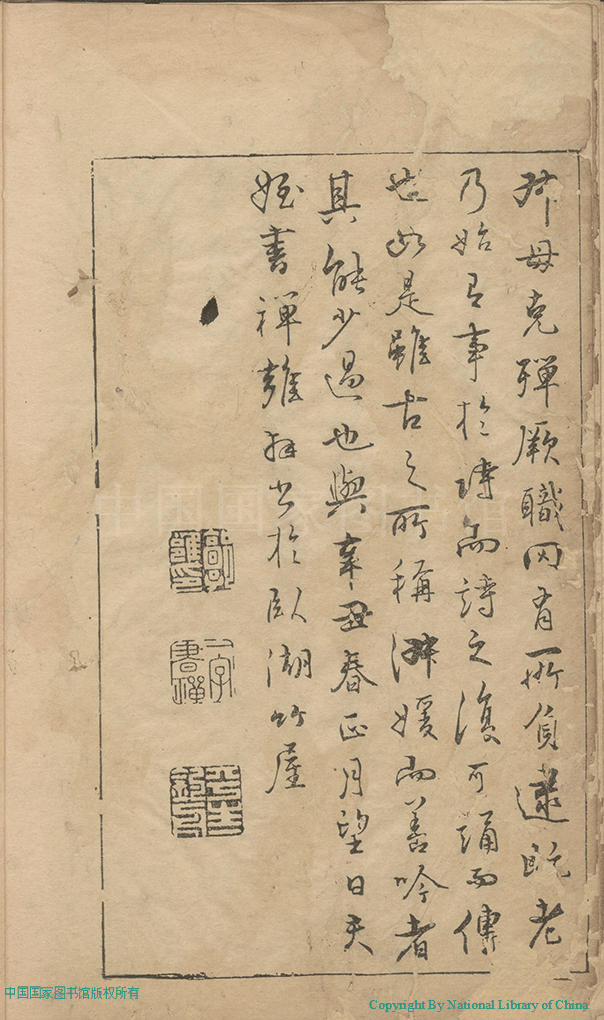 母克殫厥職因有所負逮既老
乃始有事於詩而詩之復可誦而傳
也如是雖古之所稱淑媛而善吟者
其能少過也與辛丑春正月望日天
姪書禪雄拜書於臥湖竹屋
一字書禪
中国国家图书馆
中国国家图书馆版权所有
Copyright By National Library of China